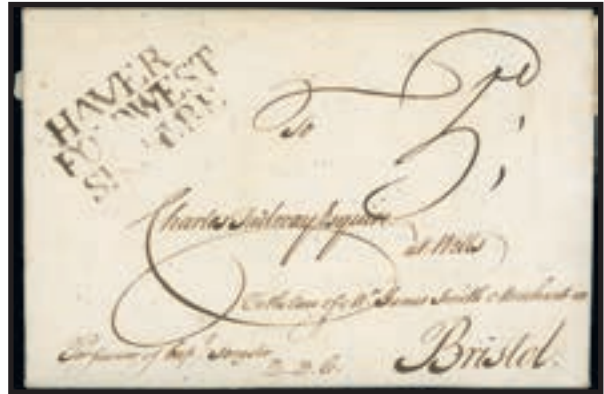 HAVER
FORDWEST
SHIRE
To
Charles Tudway Esquire
at Wells
To the Care of Mr. James Smith Merchant in
Bristol.
Per favour of Capt
Q. D. C.